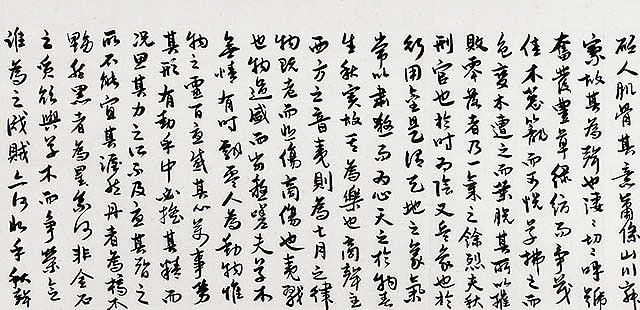 砭人肌骨其意蕭條山川寂
寥故其為聲也淒〻切〻呼號
奮發豐草綠縟而爭茂
佳木蔥籠而可悅草拂之而
色變木遭之而葉脫其所以摧
敗零落者乃一氣之餘烈夫秋
刑官也於時為陰又兵象也於
行用金是謂天地之義氣
常以肅殺而為心天之於物春
生秋實故其為樂也商聲主
西方之音夷則為七月之律
物既老而悲傷商傷也夷戮
也物過盛而當殺嗟夫草木
無情有時飄零人為動物惟
物之靈百憂感其心萬事勞
其形有動乎中必搖其精而
況思其力之所不及憂其智之
所不能宜其渥然丹者為槁木
黟然黑者為星〻奈何非金石
之質欲與草木而爭榮念
誰為之戕賊亦何恨乎秋聲